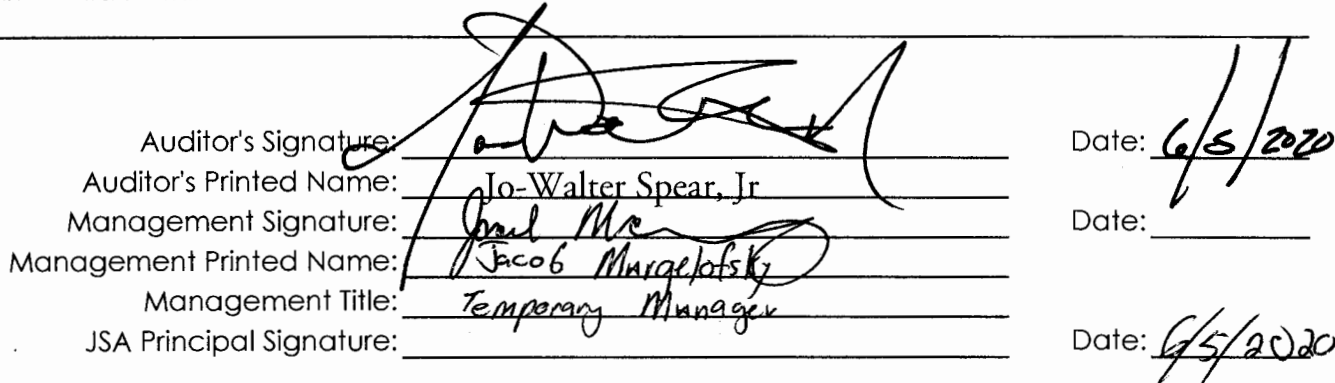 Auditor's Signature: Date: 6/5/2020
Auditor's Printed Name: Jo-Walter Spear, Jr
Management Signature: Date:
Management Printed Name: Jacob Margelofsky
Management Title: Temporary Manager
JSA Principal Signature: Date: 6/5/2020